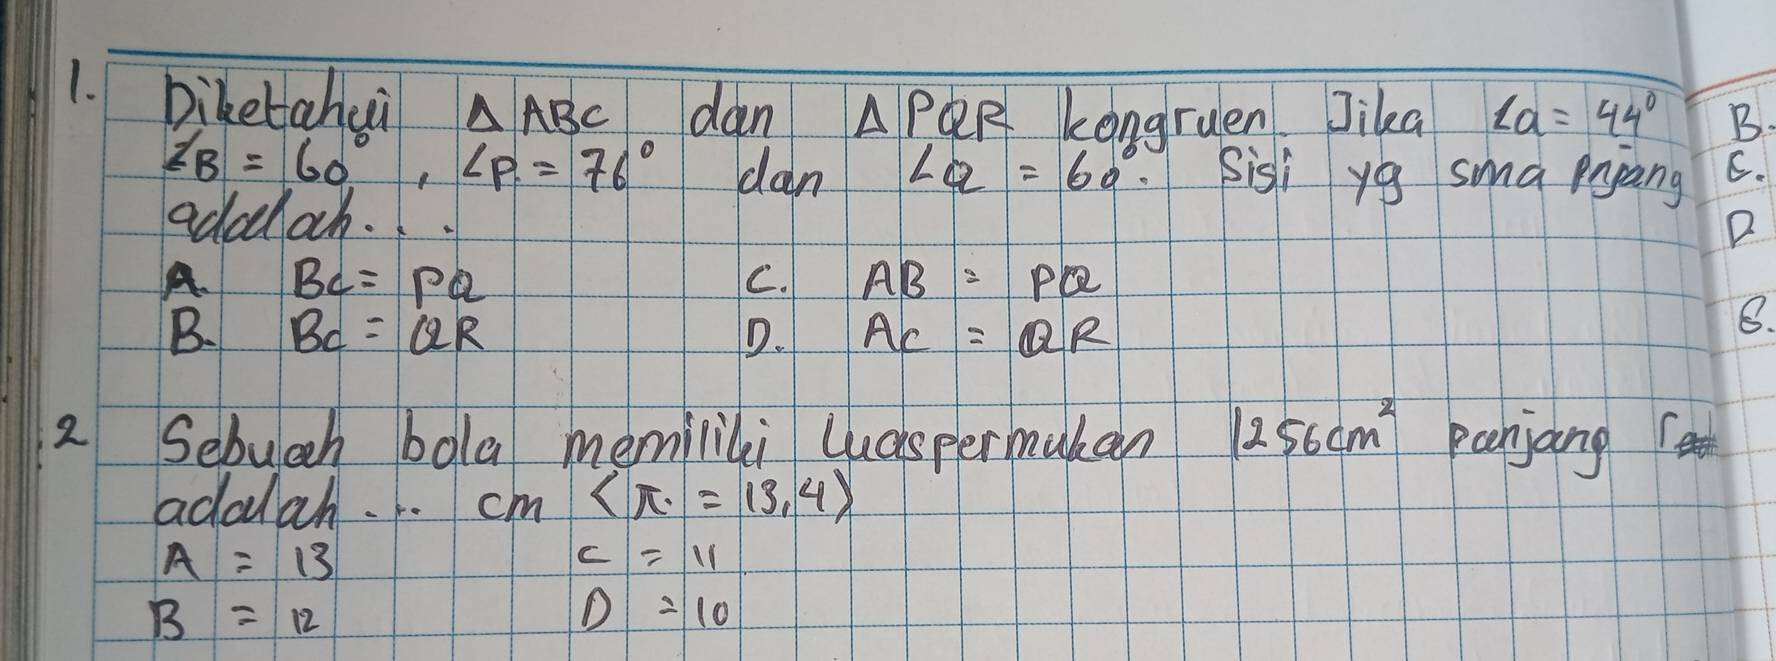 1. Diketahui Δ ABC dan Δ PQR kongruen. Jika ∠a = 44°
∠B = 60°, ∠P. = 76° dan ∠Q = 60°. Sisi yg sma pnjang
adalah...
A. BC = PQ C. AB = PQ
B. BC = QR D. AC = QR
2 Sebuah bola memiliki luaspermukan 1256cm² panjang r
adalah... cm <π. = 13,4>
A = 13 C = 11
B = 12 D = 10
B.
C.
D
6.